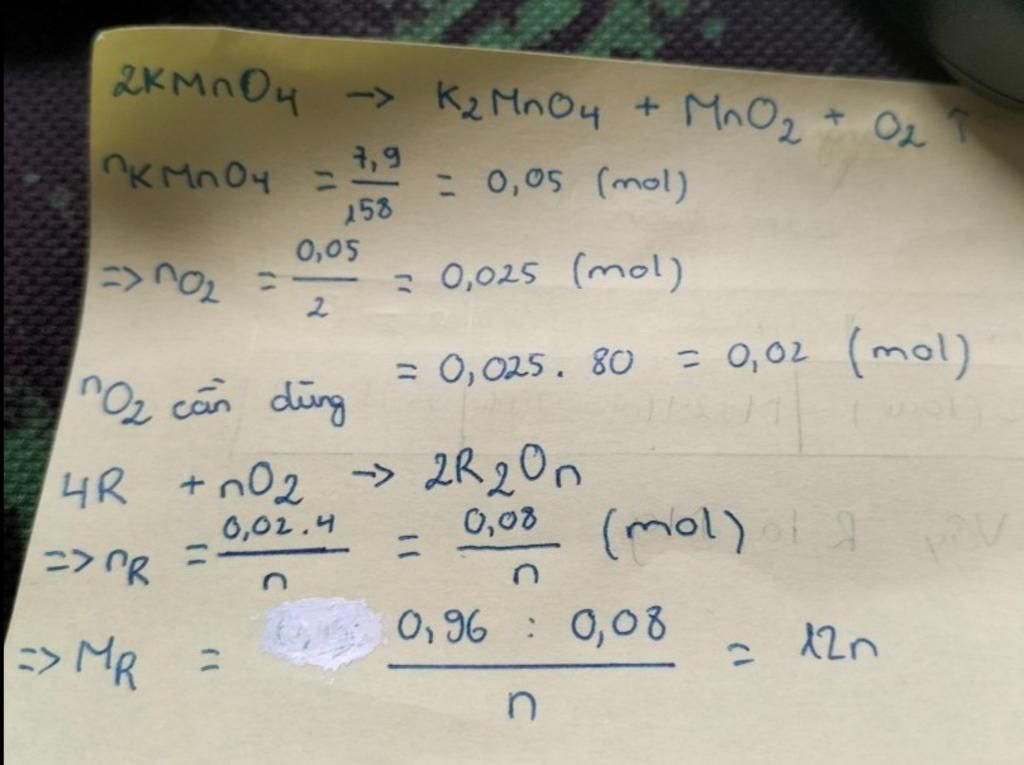 2KMnO4 → K2MnO4 + MnO2 + O2 ↑
nKMnO4 = 7,9/158 = 0,05 (mol)
=> nO2 = 0,05/2 = 0,025 (mol)
nO2 cần dùng = 0,025. 80 = 0,02 (mol)
4R + nO2 → 2R2On
=> nR = 0,02.4/n = 0,08/n (mol)
=> MR = 0,96 : 0,08/n = 12n